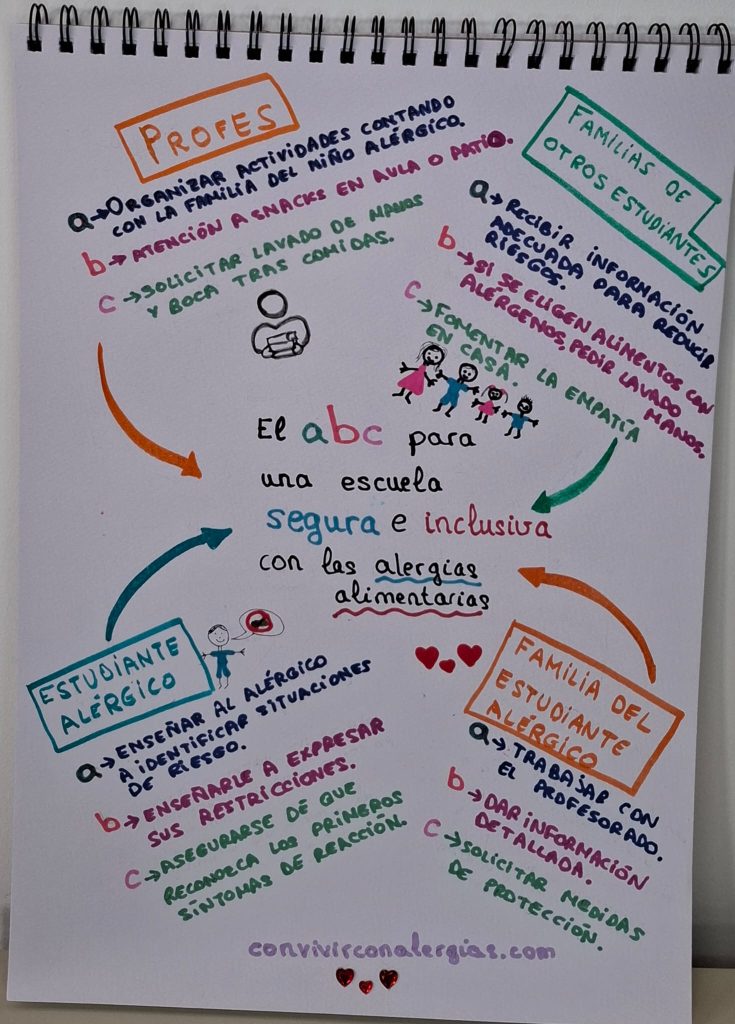 PROFES
a→ORGANIZAR ACTIVIDADES CONTANDO
CON LA FAMILIA DEL NIÑO ALÉRGICO.
b→ATENCIÓN A SNACKS EN AULA O PATIO.
c→SOLICITAR LAVADO DE MANOS
Y BOCA TRAS COMIDAS.
FAMILIAS DE
OTROS ESTUDIANTES
a→RECIBIR INFORMACIÓN
ADECUADA PARA REDUCIR
RIESGOS.
b→SI SE ELIGEN ALIMENTOS CON
ALÉRGENOS, PEDIR LAVADO
MANOS.
c→FOMENTAR LA EMPATÍA
EN CASA.
El abc para
una escuela
segura e inclusiva
con las alergias
alimentarias
ESTUDIANTE
ALÉRGICO
a→ENSEÑAR AL ALÉRGICO
A IDENTIFICAR SITUACIONES
DE RIESGO.
b→ENSEÑARLE A EXPRESAR
SUS RESTRICCIONES.
c→ASEGURARSE DE QUE
RECONOZCA LOS PRIMEROS
SÍNTOMAS DE REACCIÓN.
FAMILIA DEL
ESTUDIANTE
ALÉRGICO
a→TRABAJAR CON
EL PROFESORADO.
b→DAR INFORMACIÓN
DETALLADA.
c→SOLICITAR MEDIDAS
DE PROTECCIÓN.
convivirconalergias.com